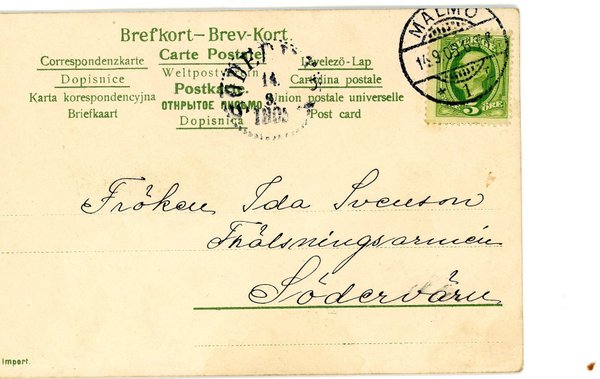 Brefkort—Brev-Kort.
Correspondenzkarte Carte Postale Levelező-Lap
Dopisnice Weltpostverein Cartolina postale
Karta korespondencyjna Postkarte. Union postale universelle
Briefkaart ОТКРЫТОЕ ПИСЬМО. Post card
Dopisnica
MALMÖ
14.9.05
1
14
9
1905
5 ÖRE
Fröken Ida Svenson
Frälsningsarmén
Södervärn
import.